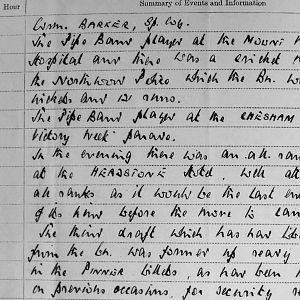 Summary of Events and Information
Hour
Comm. BARKER,
The Pipe Band played at the MOUNT
Hospital and there was a cricket
the Northwood Police which the Bn. wo
wickets and 12 runs.
The Pipe Band played at the CHESHAM
Victory Week parade.
In the evening there was an all ran
at the HEADSTONE Hotel, with
all ranks as it would be the last
of its kind before the move to
The third draft which has
from the Bn. was formed up ready
in the PINNER as has been
on previous occasions, for security